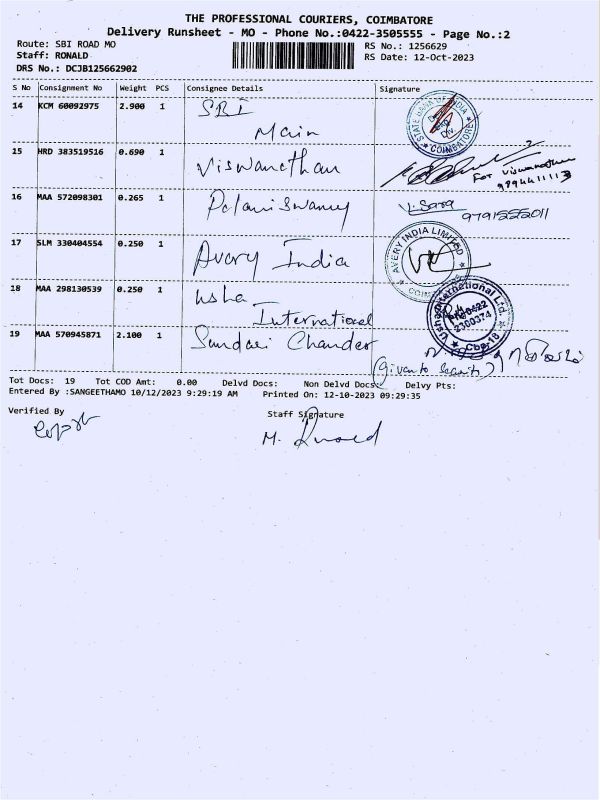 THE PROFESSIONAL COURIERS, COIMBATORE
Delivery Runsheet - MO - Phone No.:0422-3505555 - Page No.:2
Route: SBI ROAD MO
RS No.: 1256629
Staff: RONALD
RS Date: 12-Oct-2023
DRS No.: DCJB125662902
S No Consignment No Weight PCS Consignee Details Signature
14 KCM 60092975 2.900 1 SBI
Main
STATE BANK OF INDIA
COIMBATORE
15 HRD 383519516 0.690 1 Viswanathan
For Viswanathan
9894411113
16 MAA 572098301 0.265 1 Palaniswamy
V. Sara
9791555011
17 SLM 330404554 0.250 1 Avery India
AVERY INDIA LIMITED
18 MAA 298130539 0.250 1 Usha
International
Usha International Ltd.
19 MAA 570945871 2.100 1 Sundari Chander
(Given to Security)
Tot Docs: 19 Tot COD Amt: 0.00 Delvd Docs: Non Delvd Docs: Delvy Pts:
Entered By :SANGEETHAMO 10/12/2023 9:29:19 AM Printed On: 12-10-2023 09:29:35
Verified By
Staff Signature
M. Ronald